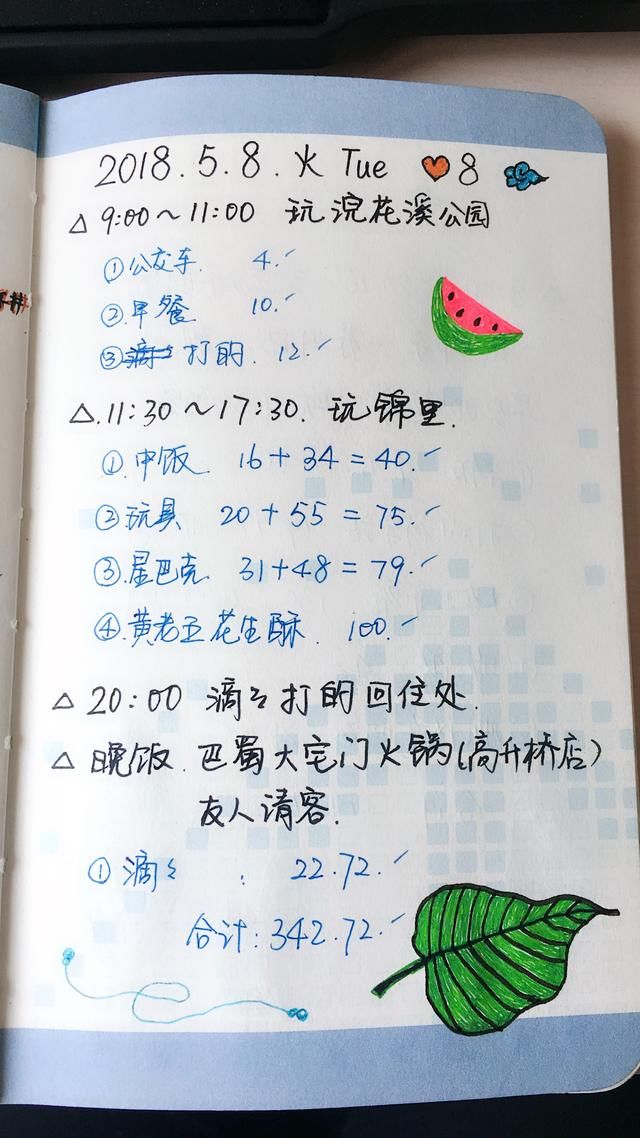 2018.5.8.火 Tue 8
△ 9:00~11:00 玩浣花溪公园
①公交车. 4.
②早餐 10.
③滴滴 打的. 12.
△.11:30~17:30. 玩锦里.
①.中饭. 16+34=40.
②玩具 20+55=75.
③.星巴克. 31+48=79.
④.黄老五花生酥. 100.
△ 20:00 滴滴打的回住处.
△ 晚饭.巴蜀大宅门火锅(高升桥店)
友人请客.
①滴滴 : 22.72.
合计:342.72.